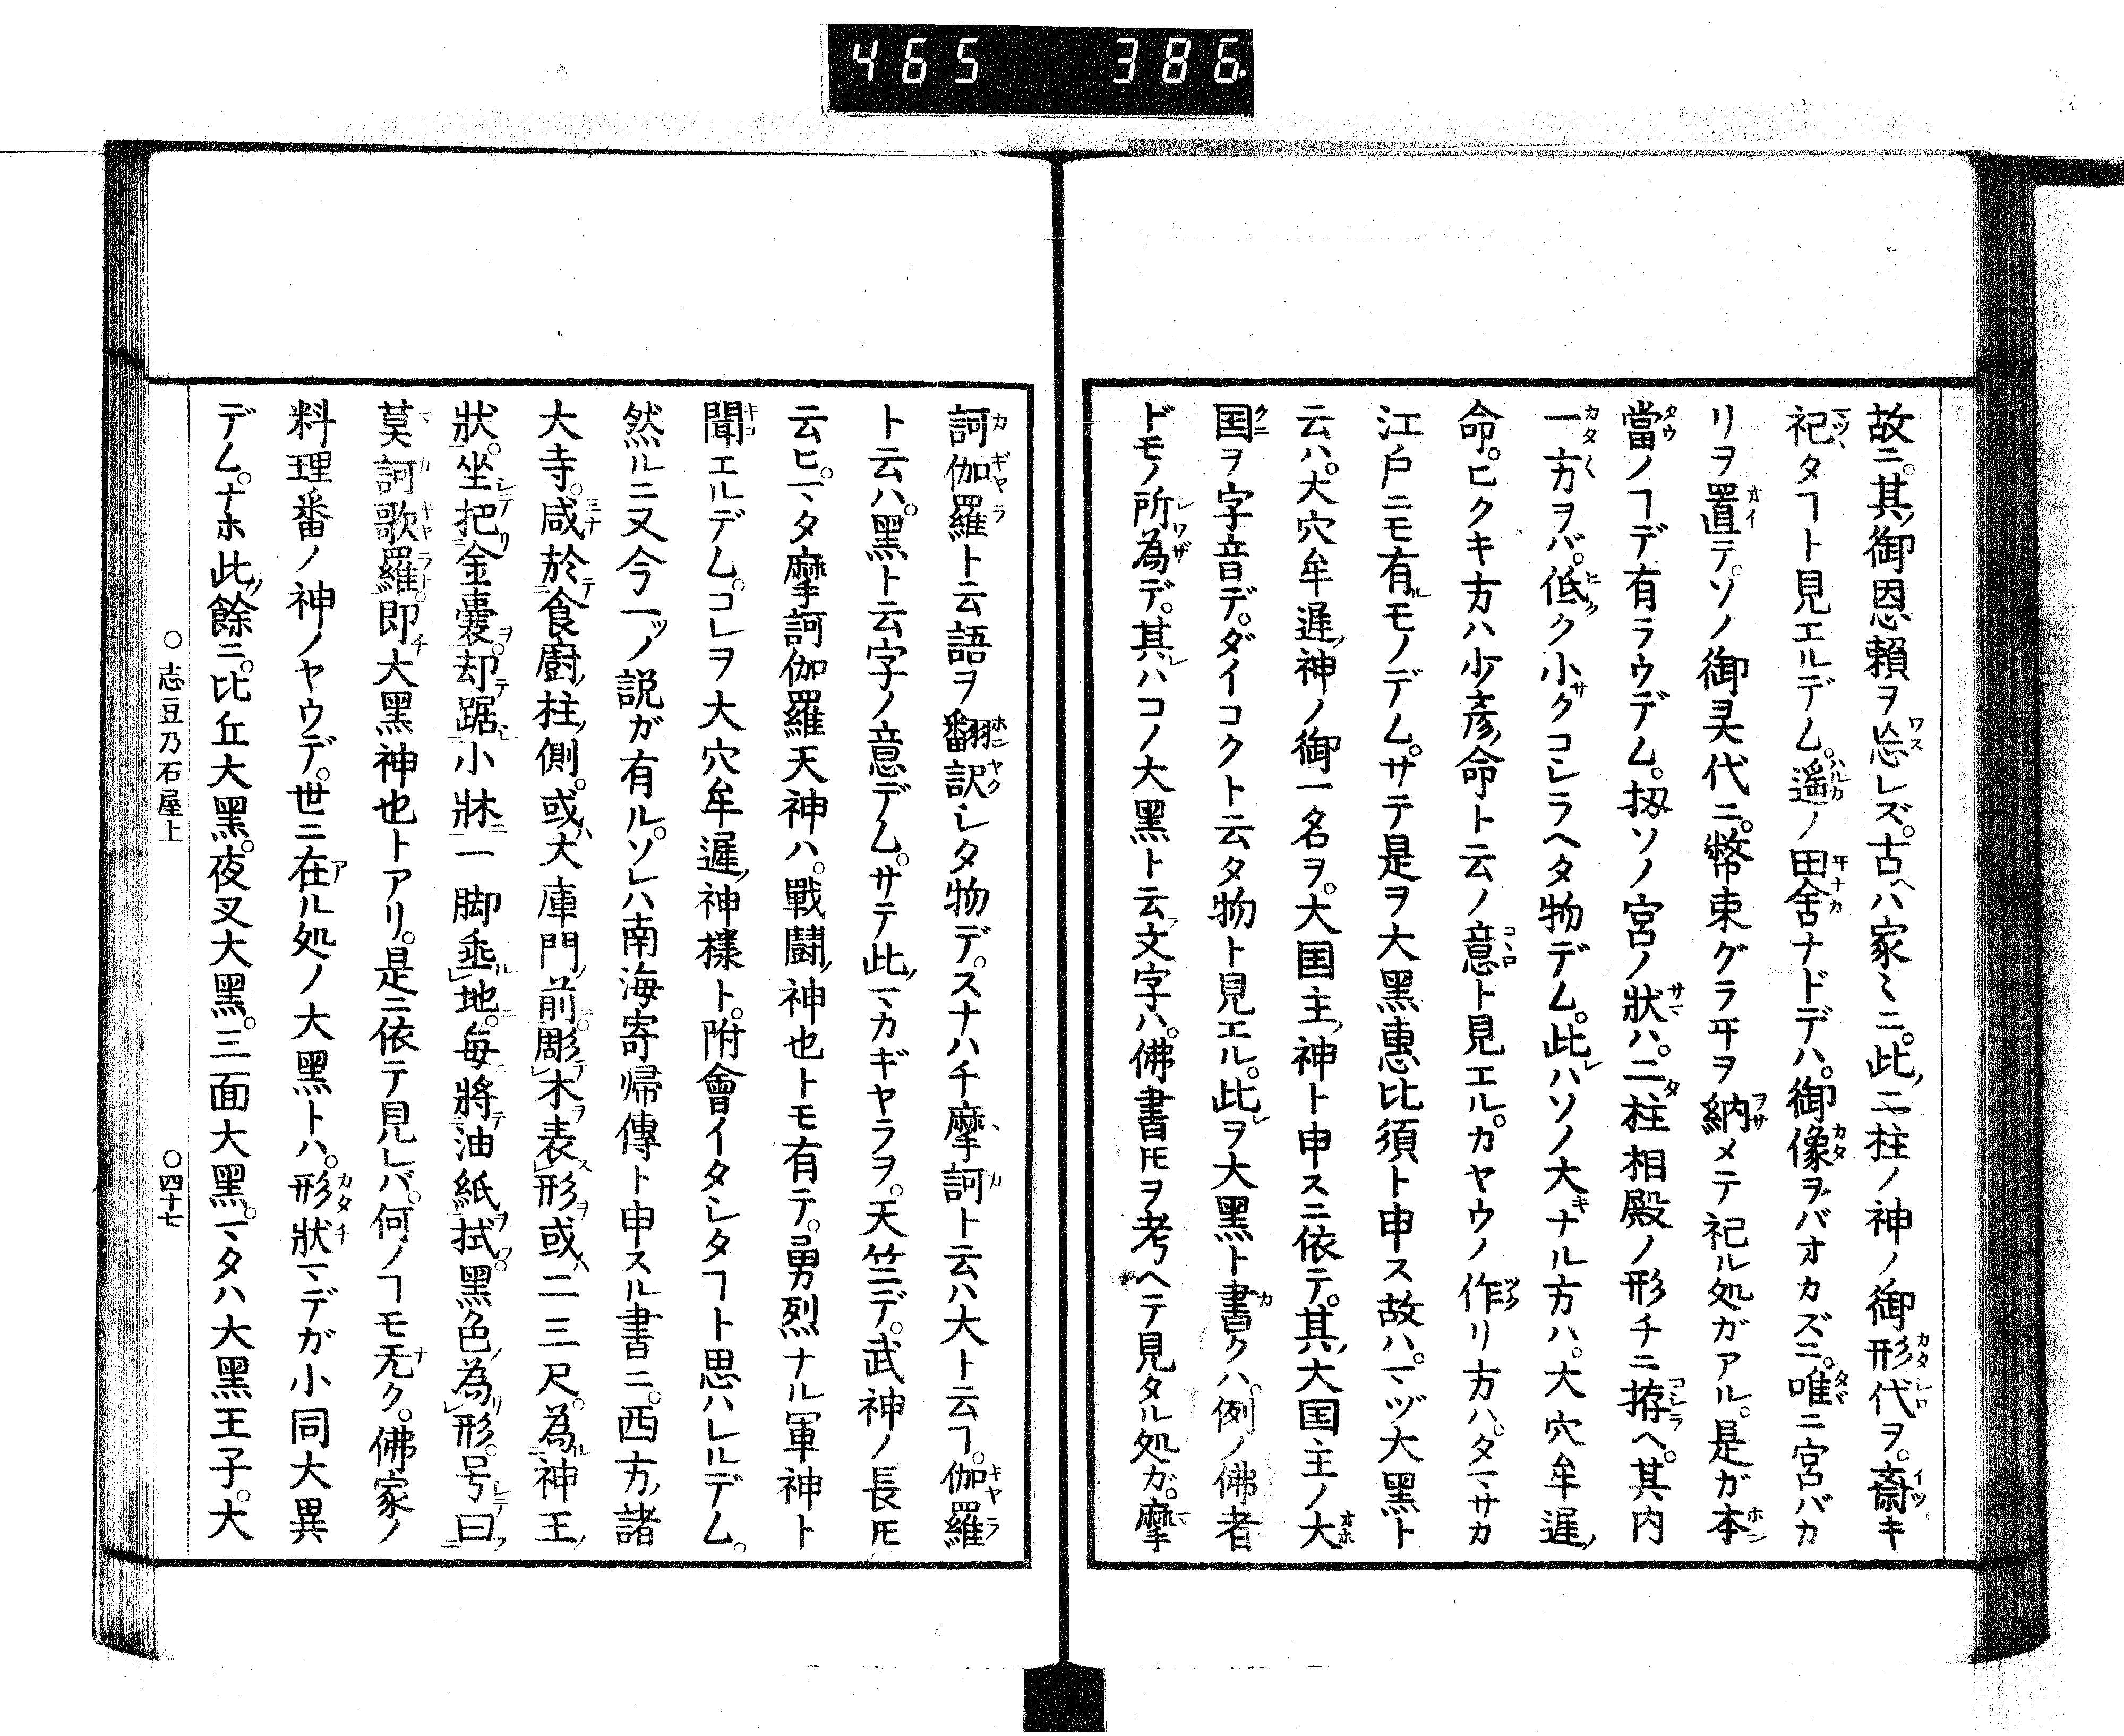 465 386.
故ニ。其ノ御恩頼ヲ忘レズ。古ヘハ家〻ニ。此ノ二柱ノ神ノ御形代ヲ。齋キ
祀タヿト見エルデム。遥ノ田舎ナドデハ。御像ヲバオカズニ。唯ニ宮バカ
リヲ置テ。ソノ御灵代ニ。幣束グラヰヲ納メテ祀ル処ガアル。是ガ本
當ノヿデ有ラウデム。扨ソノ宮ノ狀ハ。二タ柱相殿ノ形チニ拵ヘ。其内
一方ヲバ。低ク小サクコシラヘタ物デム。此レハソノ大キナル方ハ。大穴牟遅ノ
命。ヒクキ方ハ少彦ノ命ト云ノ意ト見エル。カヤウノ作リ方ハ。タマサカ
江戸ニモ有ルモノデム。サテ是ヲ大黒惠比須ト申ス故ハ。マヅ大黒ト
云ハ。大穴牟遅ノ神ノ御一名ヲ。大国主ノ神ト申スニ依テ。其ノ大国主ノ大
国ヲ字音デ。ダイコクト云タ物ト見エル。此レヲ大黒ト書クハ。例ノ佛者
ドモノ所為デ。其レハコノ大黒ト云フ文字ハ。佛書𪜈ヲ考ヘテ見タル処ガ。摩
訶伽羅ト云語ヲ翻訳シタ物デ。スナハチ摩訶ト云ハ大ト云フヿ。伽羅
ト云ハ。黒ト云字ノ意デム。サテ此ノマカギヤラヲ。天竺デ。武神ノ長𪜈
云ヒ。マタ摩訶伽羅天神ハ。戰鬪ノ神也トモ有テ。勇烈ナル軍神ト
聞エルデム。コレヲ大穴牟遅ノ神樣ト。附會イタシタヿト思ハレルデム。
然ルニ又今一ツノ説ガ有ル。ソレハ南海寄帰傳ト申スル書ニ。西方ノ諸
大寺。咸於食廚ノ柱ノ側。或ハ大庫門ノ前彫木表形或ハ二三尺。為神王ノ
狀。坐把金囊却踞小牀一脚垂地。毎將油紙拭黒色為形。号曰
莫訶歌羅即チ大黒神也トアリ。是ニ依テ見レバ。何ノヿモ无ク。佛家ノ
料理番ノ神ノヤウデ。世ニ在ル処ノ大黒トハ。形狀マデガ小同大異
デム。ナホ此ノ餘ニ。比丘大黒。夜叉大黒。三面大黒。マタハ大黒王子。大
〇志豆乃石屋上 〇四十七